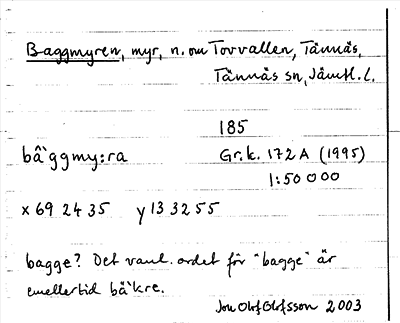 Baggmyren, myr, n. om Torvallen, Tännäs,
Tännäs sn, Jämtl. l.
185
bä̀ggmy:ra Gr.k. 172 A (1995)
1:50 000
x 69 24 35 y 13 32 55
bagge? Det vanl. ordet för "bagge" är
emellertid bä̀kre.
Jon Olof Olofsson 2003